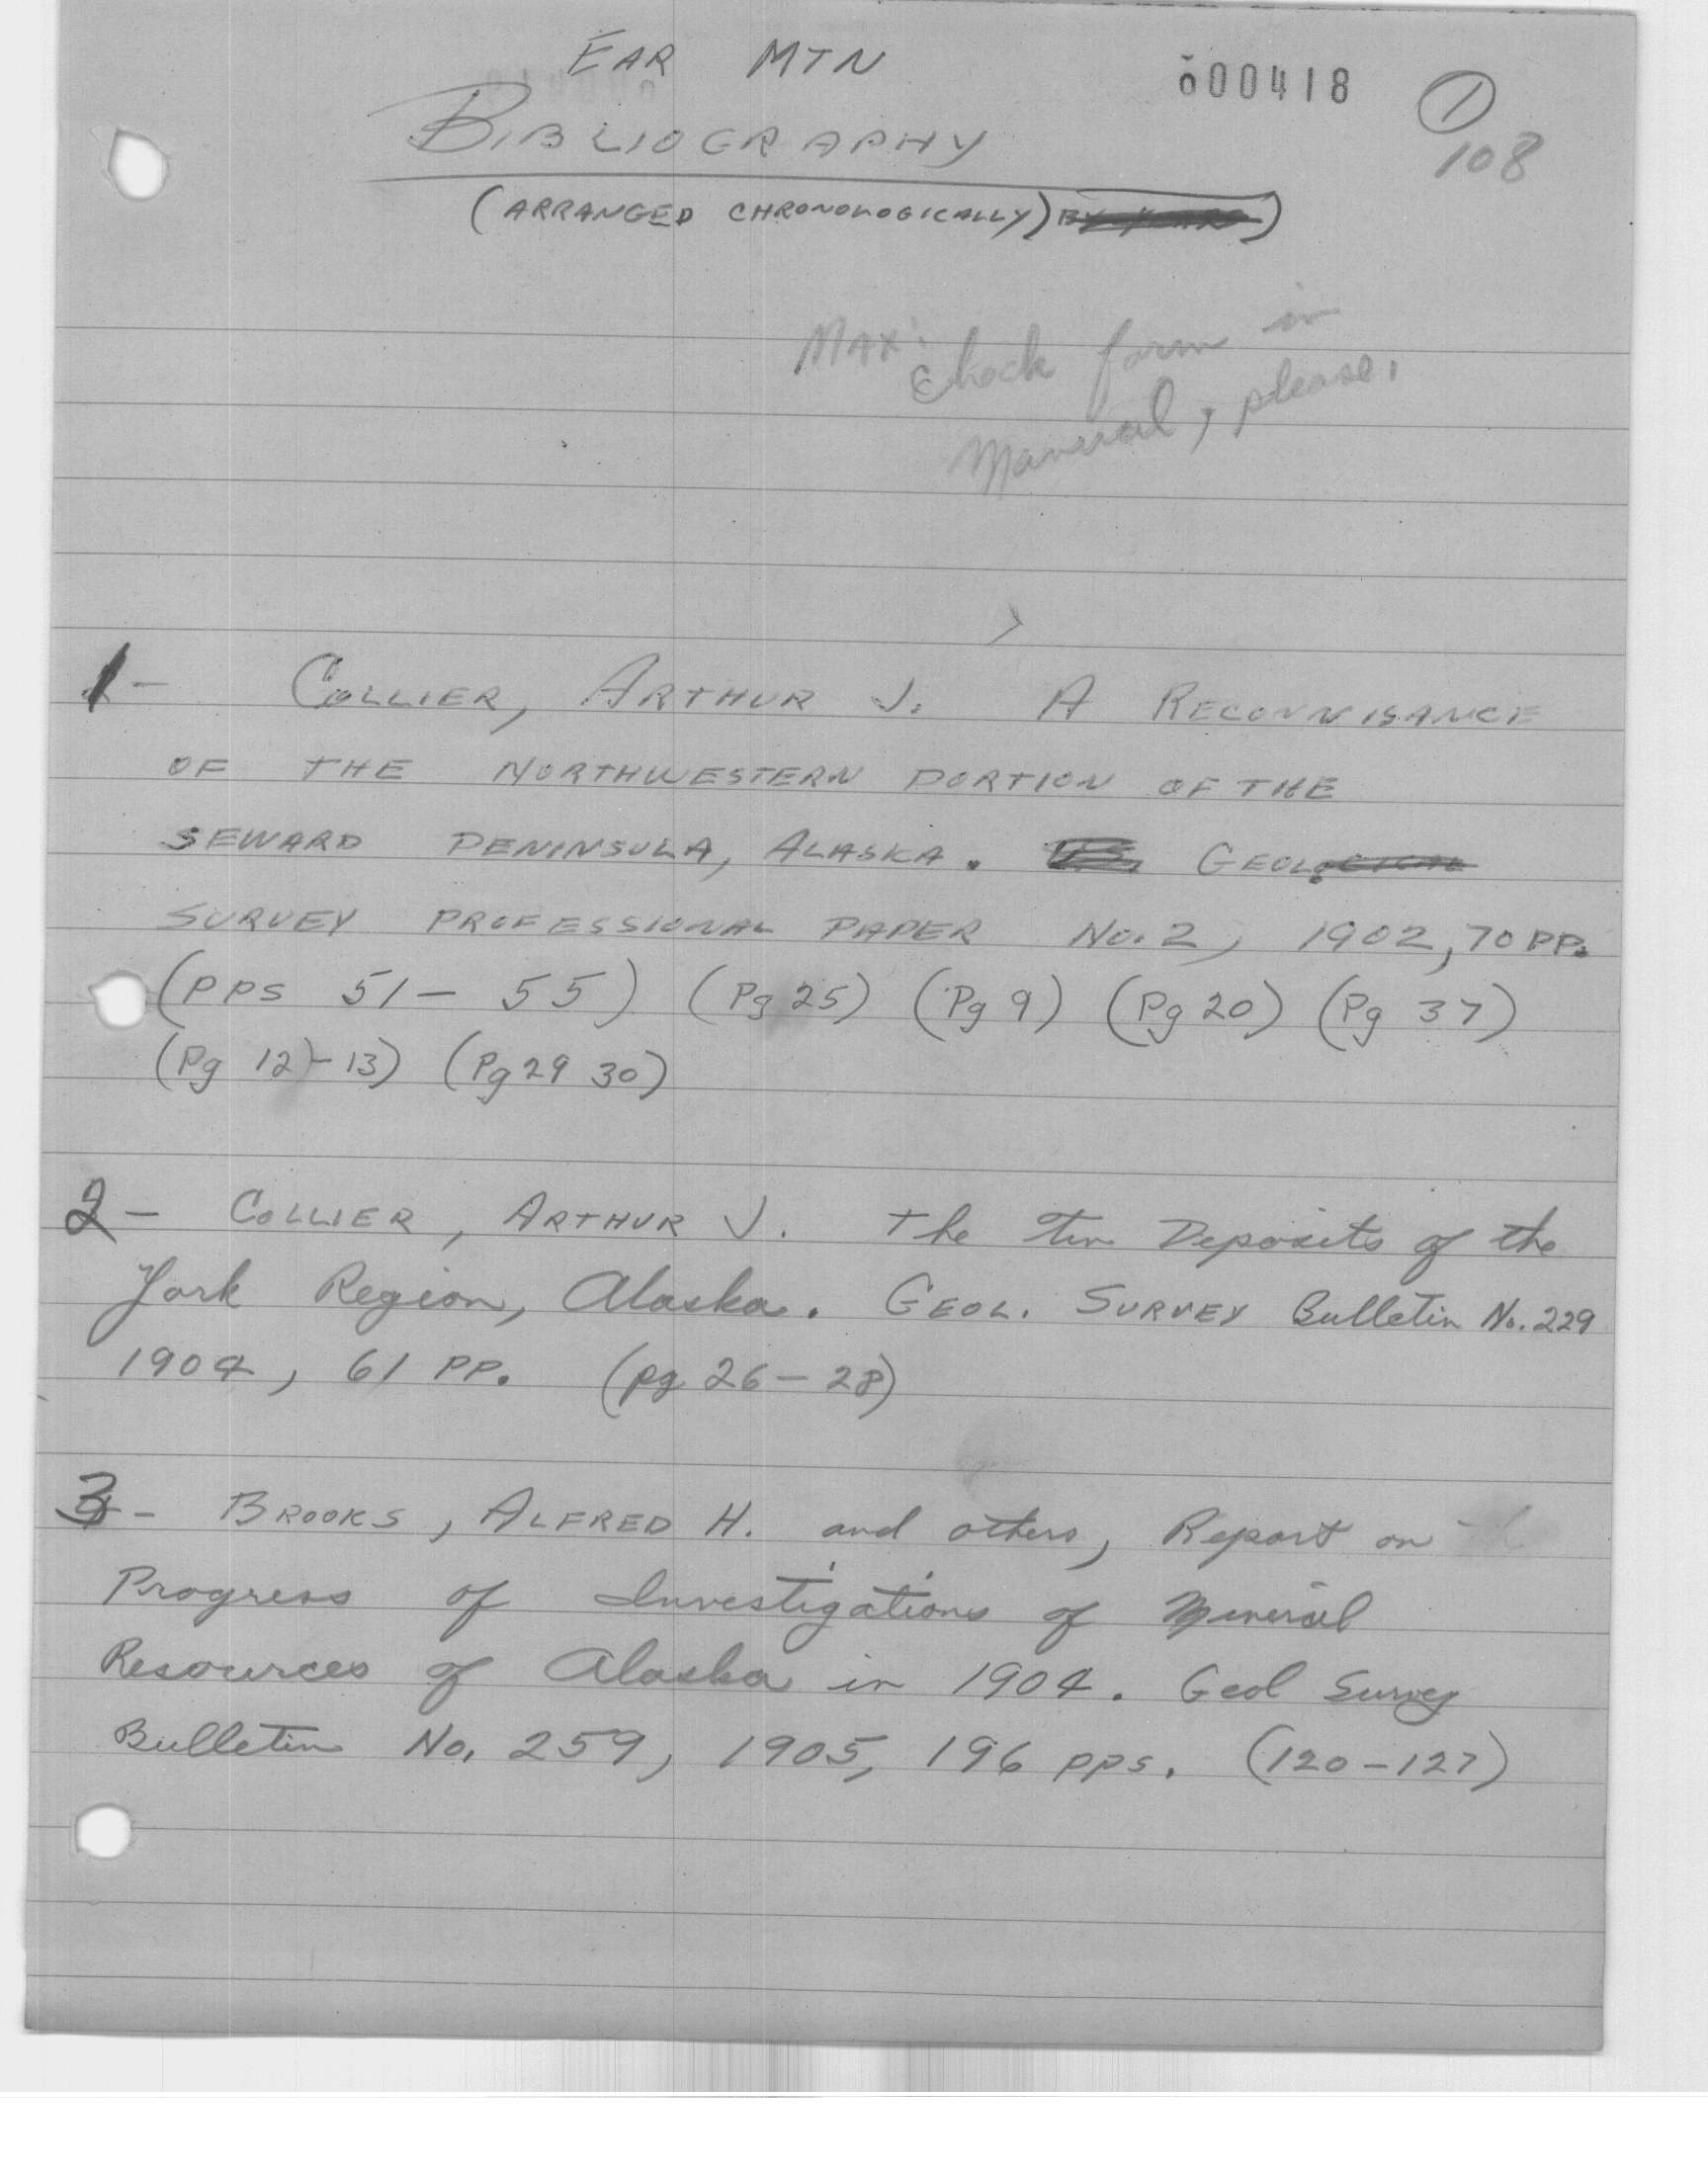 EAR MTN
000418
1
108
BIBLIOGRAPHY
(ARRANGED CHRONOLOGICALLY) BY YEARS)
MAX:
Check form in
Manual, please.
1- COLLIER, ARTHUR J. A RECONNISANCE
OF THE NORTHWESTERN PORTION OF THE
SEWARD PENINSULA, ALASKA. U.S. GEOLOGICAL
SURVEY PROFESSIONAL PAPER No. 2, 1902, 70 PP.
(PPS 51-55) (Pg 25) (Pg 9) (Pg 20) (Pg 37)
(Pg 12)-13) (Pg 29 30)
2- COLLIER, ARTHUR J. The Tin Deposits of the
York Region, Alaska. GEOL. SURVEY Bulletin No. 229
1904, 61 PP. (pg 26-28)
3- BROOKS, ALFRED H. and others, Report on
Progress of Investigations of Mineral
Resources of Alaska in 1904. Geol Survey
Bulletin No. 259, 1905, 196 pps. (120-127)